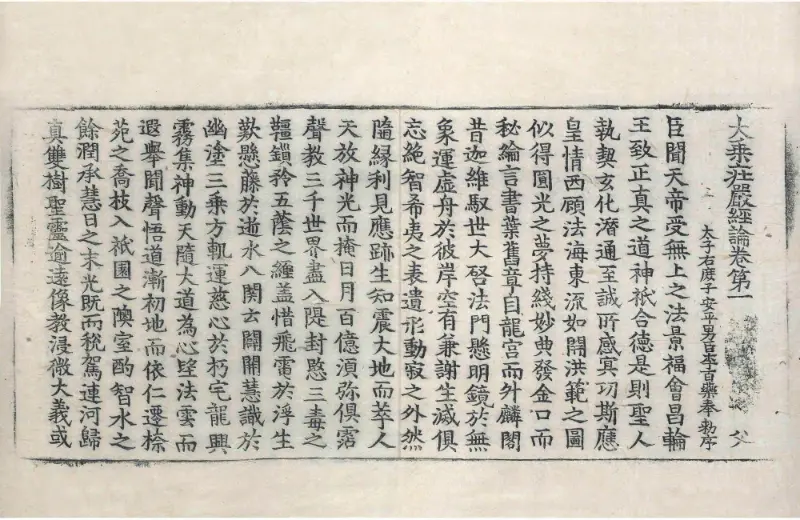 大乘庄嚴經論卷第一 父
太子右庶子安平男臣李百藥奉 勑序
臣聞天帝受無上之法景福會昌輪
王致正真之道神祇合德是則聖人
執契玄化潛通至誠所感冥功斯應
皇情西顧法海東流如開洪範之圖
似得圓光之夢持綫妙典發金口而
秘綸言書葉舊章自龍宮而外麟閣
昔迦維馭世大啓法門懸明鏡於無
象運虛舟於彼岸空有兼謝生滅俱
忘絕智希夷之表遺形動寂之外然
隨緣利見應跡生知震大地而萃人
天放神光而掩日月百億湏弥俱霑
聲教三千世界盡入隄封愍三毒之
韁鎖矜五蔭之纏盖惜飛電於浮生
歎懸藤於逝水八關玄闢開慧識於
幽塗三乘方軌運慈心於朽宅龍興
霧集神動天隨大道為心望法雲而
遐舉聞聲悟道漸初地而依仁遷㮈
苑之喬枝入祇園之隩室酌智水之
餘潤承慧日之末光既而稅駕連河歸
真雙樹聖靈逾遠像教浸微大義或